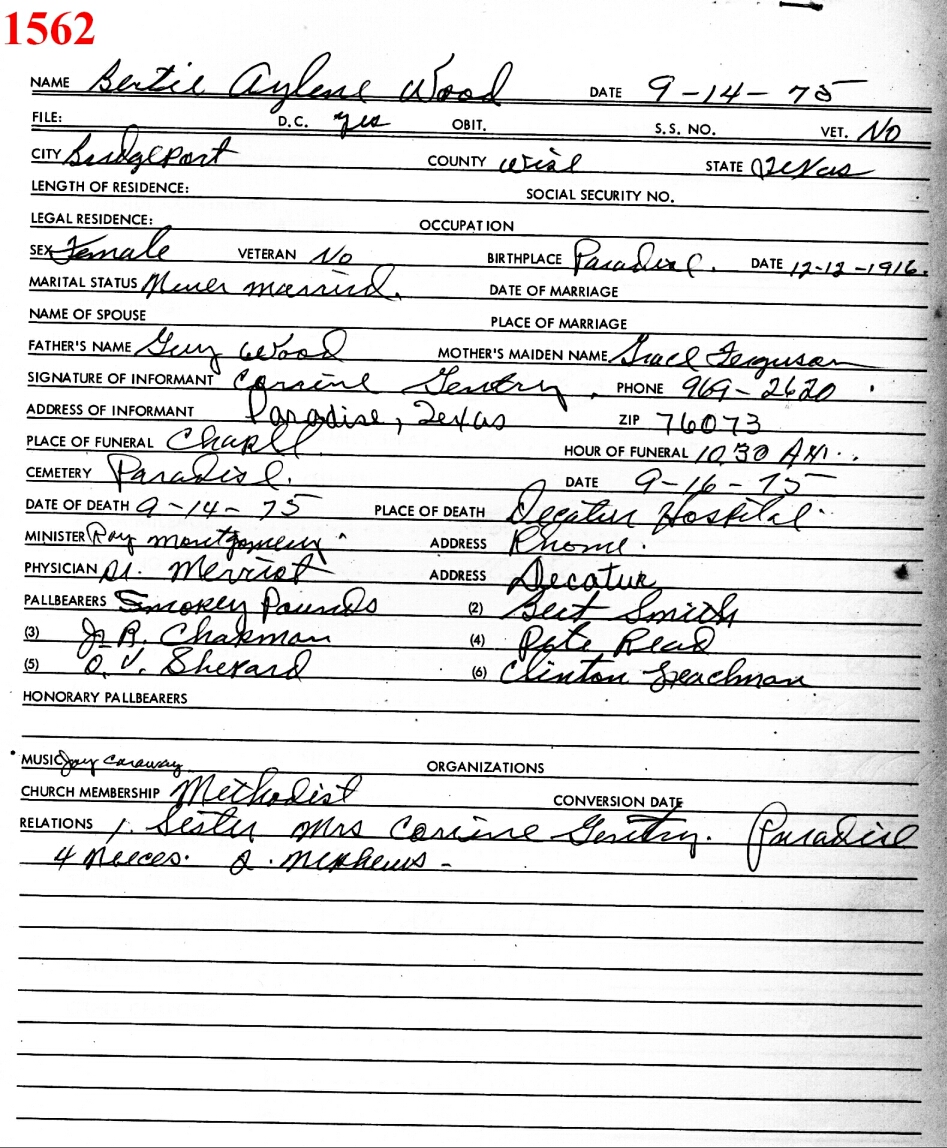 1562
NAME Bertie Aylene Wood DATE 9-14-75
FILE: D.C. yes OBIT. S.S. NO. VET. No
CITY Bridgeport COUNTY Wise STATE Texas
LENGTH OF RESIDENCE: SOCIAL SECURITY NO.
LEGAL RESIDENCE: OCCUPATION
SEX Female VETERAN No BIRTHPLACE Paradise. DATE 12-12-1916.
MARITAL STATUS Never married. DATE OF MARRIAGE
NAME OF SPOUSE PLACE OF MARRIAGE
FATHER'S NAME Guy Wood MOTHER'S MAIDEN NAME Grace Ferguson
SIGNATURE OF INFORMANT Corrine Gentry. PHONE 969-2620
ADDRESS OF INFORMANT Paradise, Texas ZIP 76073
PLACE OF FUNERAL Chapell HOUR OF FUNERAL 10:30 AM.
CEMETERY Paradise. DATE 9-16-75
DATE OF DEATH 9-14-75 PLACE OF DEATH Decatur Hospital.
MINISTER Ray Montgomery ADDRESS Rhome.
PHYSICIAN Dr. Merriot ADDRESS Decatur
PALLBEARERS Smokey Pounds (2) Bert Smith
(3) J.R. Chapman (4) Pete Read
(5) O.V. Shepard (6) Clinton Leachman
HONORARY PALLBEARERS
MUSIC Jay Caraway ORGANIZATIONS
CHURCH MEMBERSHIP Methodist CONVERSION DATE
RELATIONS 1. Sister Mrs Corrine Gentry. Paradise
4 Neeces. 2. Nephews -